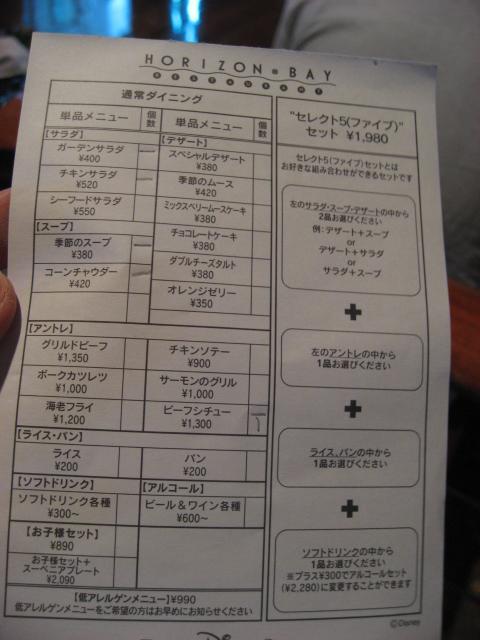 HORIZON BAY
RESTAURANT
通常ダイニング
単品メニュー 個数 単品メニュー 個数
【サラダ】
ガーデンサラダ
¥400
チキンサラダ
¥520
シーフードサラダ
¥550
【スープ】
季節のスープ
¥380
コーンチャウダー
¥420
【デザート】
スペシャルデザート
¥380
季節のムース
¥420
ミックスベリームースケーキ
¥380
チョコレートケーキ
¥380
ダブルチーズタルト
¥380
オレンジゼリー
¥350
【アントレ】
グリルドビーフ
¥1,350
ポークカツレツ
¥1,000
海老フライ
¥1,200
チキンソテー
¥900
サーモンのグリル
¥1,000
ビーフシチュー
¥1,300
【ライス・パン】
ライス
¥200
パン
¥200
【ソフトドリンク】
ソフトドリンク各種
¥300~
【アルコール】
ビール&ワイン各種
¥600~
【お子様セット】
¥890
お子様セット+
スーベニアプレート
¥2,090
【低アレルゲンメニュー】¥990
低アレルゲンメニューをご希望の方はお早めにお知らせください
"セレクト5(ファイブ)"
セット ¥1,980
セレクト5(ファイブ)セットとは
お好きな組み合わせができるセットです
左のサラダ・スープ・デザートの中から
2品お選びください
例:デザート+スープ
or
デザート+サラダ
or
サラダ+スープ
+
左のアントレの中から
1品お選びください
+
ライス、パンの中から
1品お選びください
+
ソフトドリンクの中から
1品お選びください
※プラス¥300でアルコールセット
(¥2,280)に変更することができます
©Disney